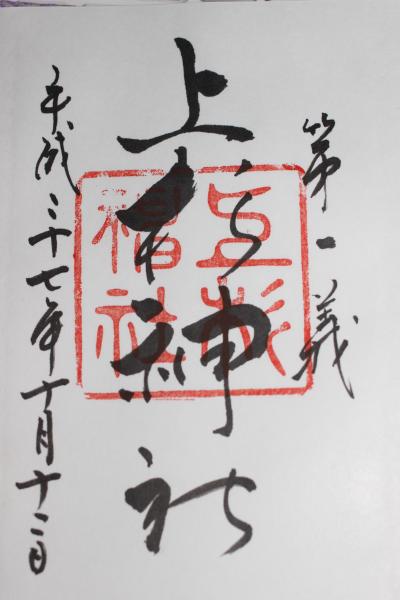 第一義
上杉神社
上杉神社
平成二十七年十月十二日